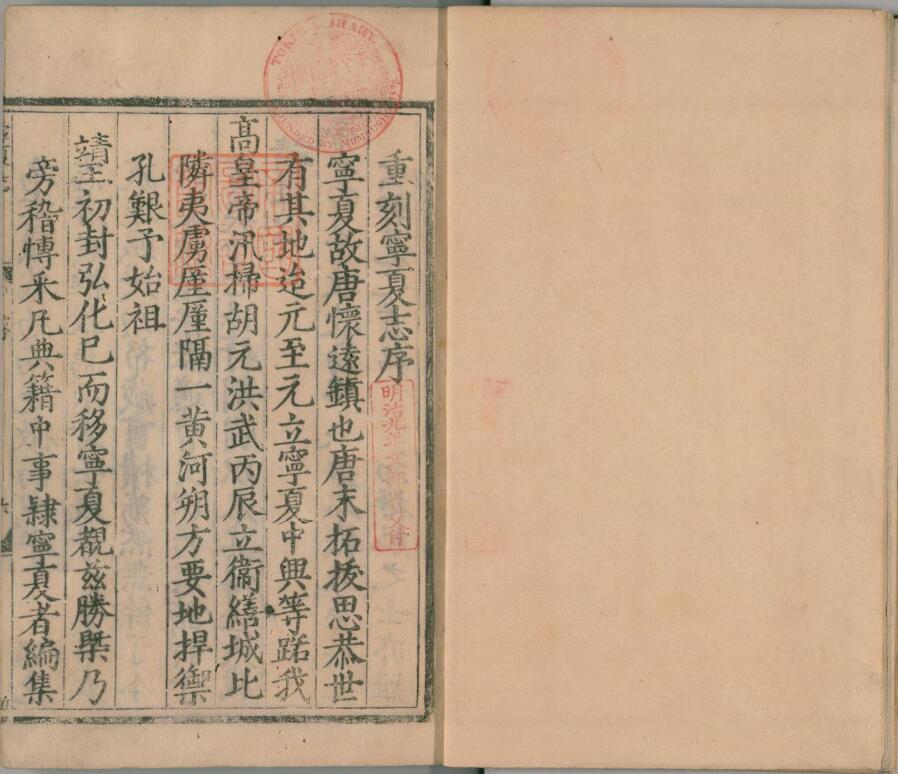 重刻寧夏志序
寧夏故唐懷遠鎮也唐末拓拔思恭世
有其地迨元至元立寧夏中興等路我
高皇帝汛掃胡元洪武丙辰立衞繕城比
隣夷虜厪厪隔一黃河朔方要地捍禦
孔艱予始祖
靖王初封弘化巳而移寧夏覩茲勝槩乃
旁稽博采凡典籍中事隷寧夏者編集
明治九年文部省交付
TOKIO LIBRARY
FOUNDED BY MOMBUSHO